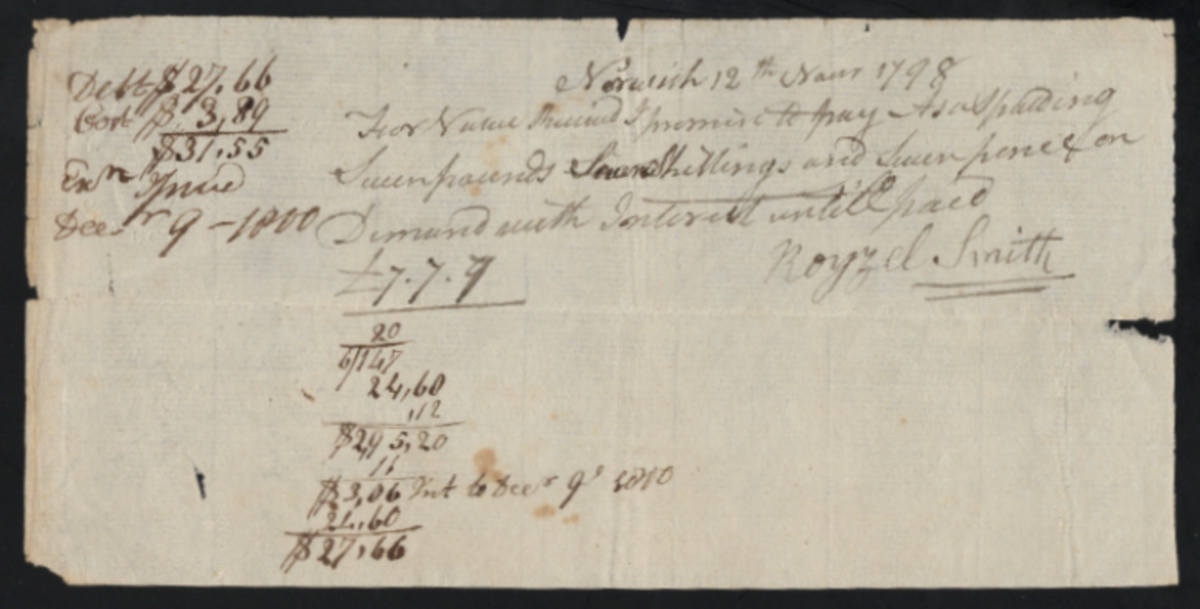 Debt $27,66
Cost $ 3,89
$31,55
Exn Issued
Decr 9 - 1800
Norwich 12th Novr 1798
For Value Receivd I promise to pay Asa Spalding
Seven pounds Seven Shillings and Seven pence on
Demand with Interest untill paid
Royzel Smith
£7.7.7
20
6/147
24,60
,12
$2,95,20
11
$3,06 Int to Decr 9th 1800
24,60
$27,66